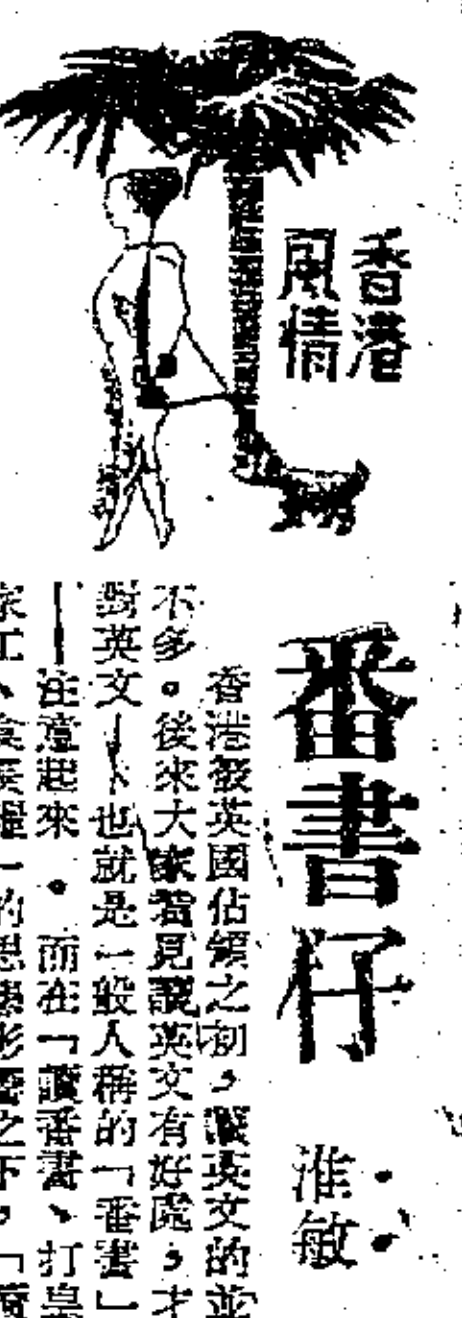 香港
風情
番書仔
淮敏
香港被英國佔領之初，讀英文的並
不多。後來大家看見讀英文有好處，才
對英文——也就是一般人稱的「番書」
——注意起來。而在「讀番書、打皇
家工、食皇糧」的思想影響之下，「讀